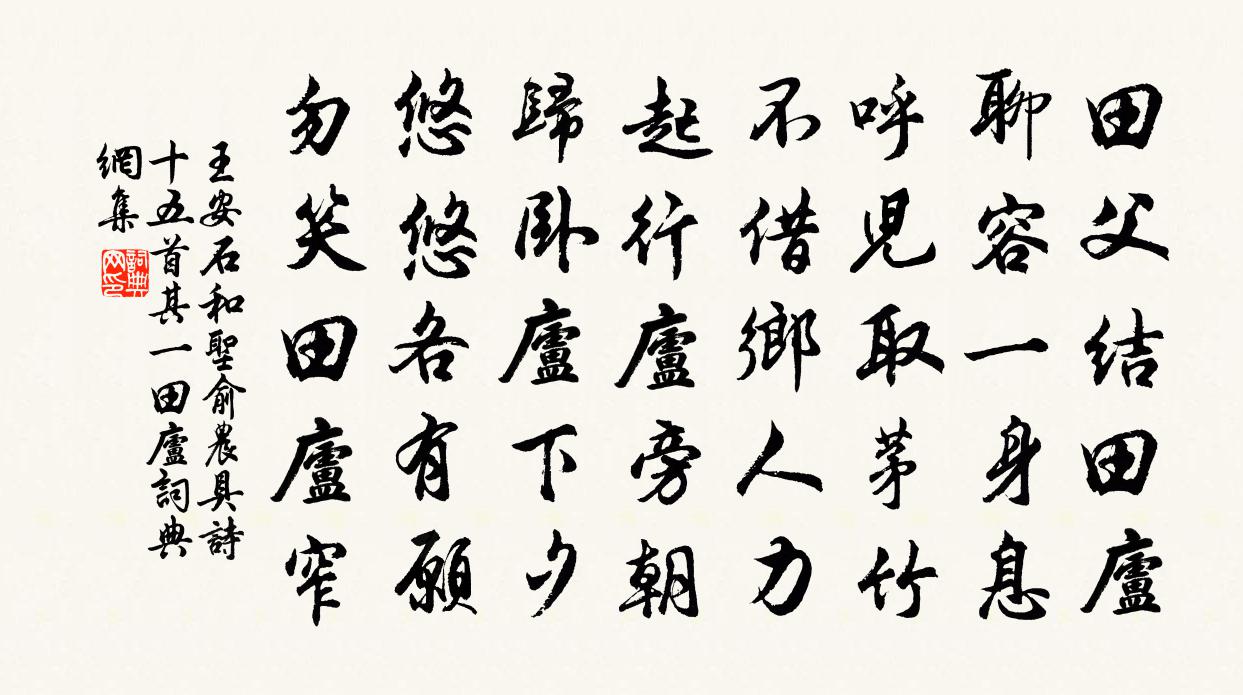 田父結田廬
聊容一身息
呼兒取茅竹
不借鄉人力
起行廬旁朝
歸卧廬下夕
悠悠各有願
勿笑田廬窄
王安石和聖俞農具詩
十五首其一田廬詞典
網集
詞典
网印